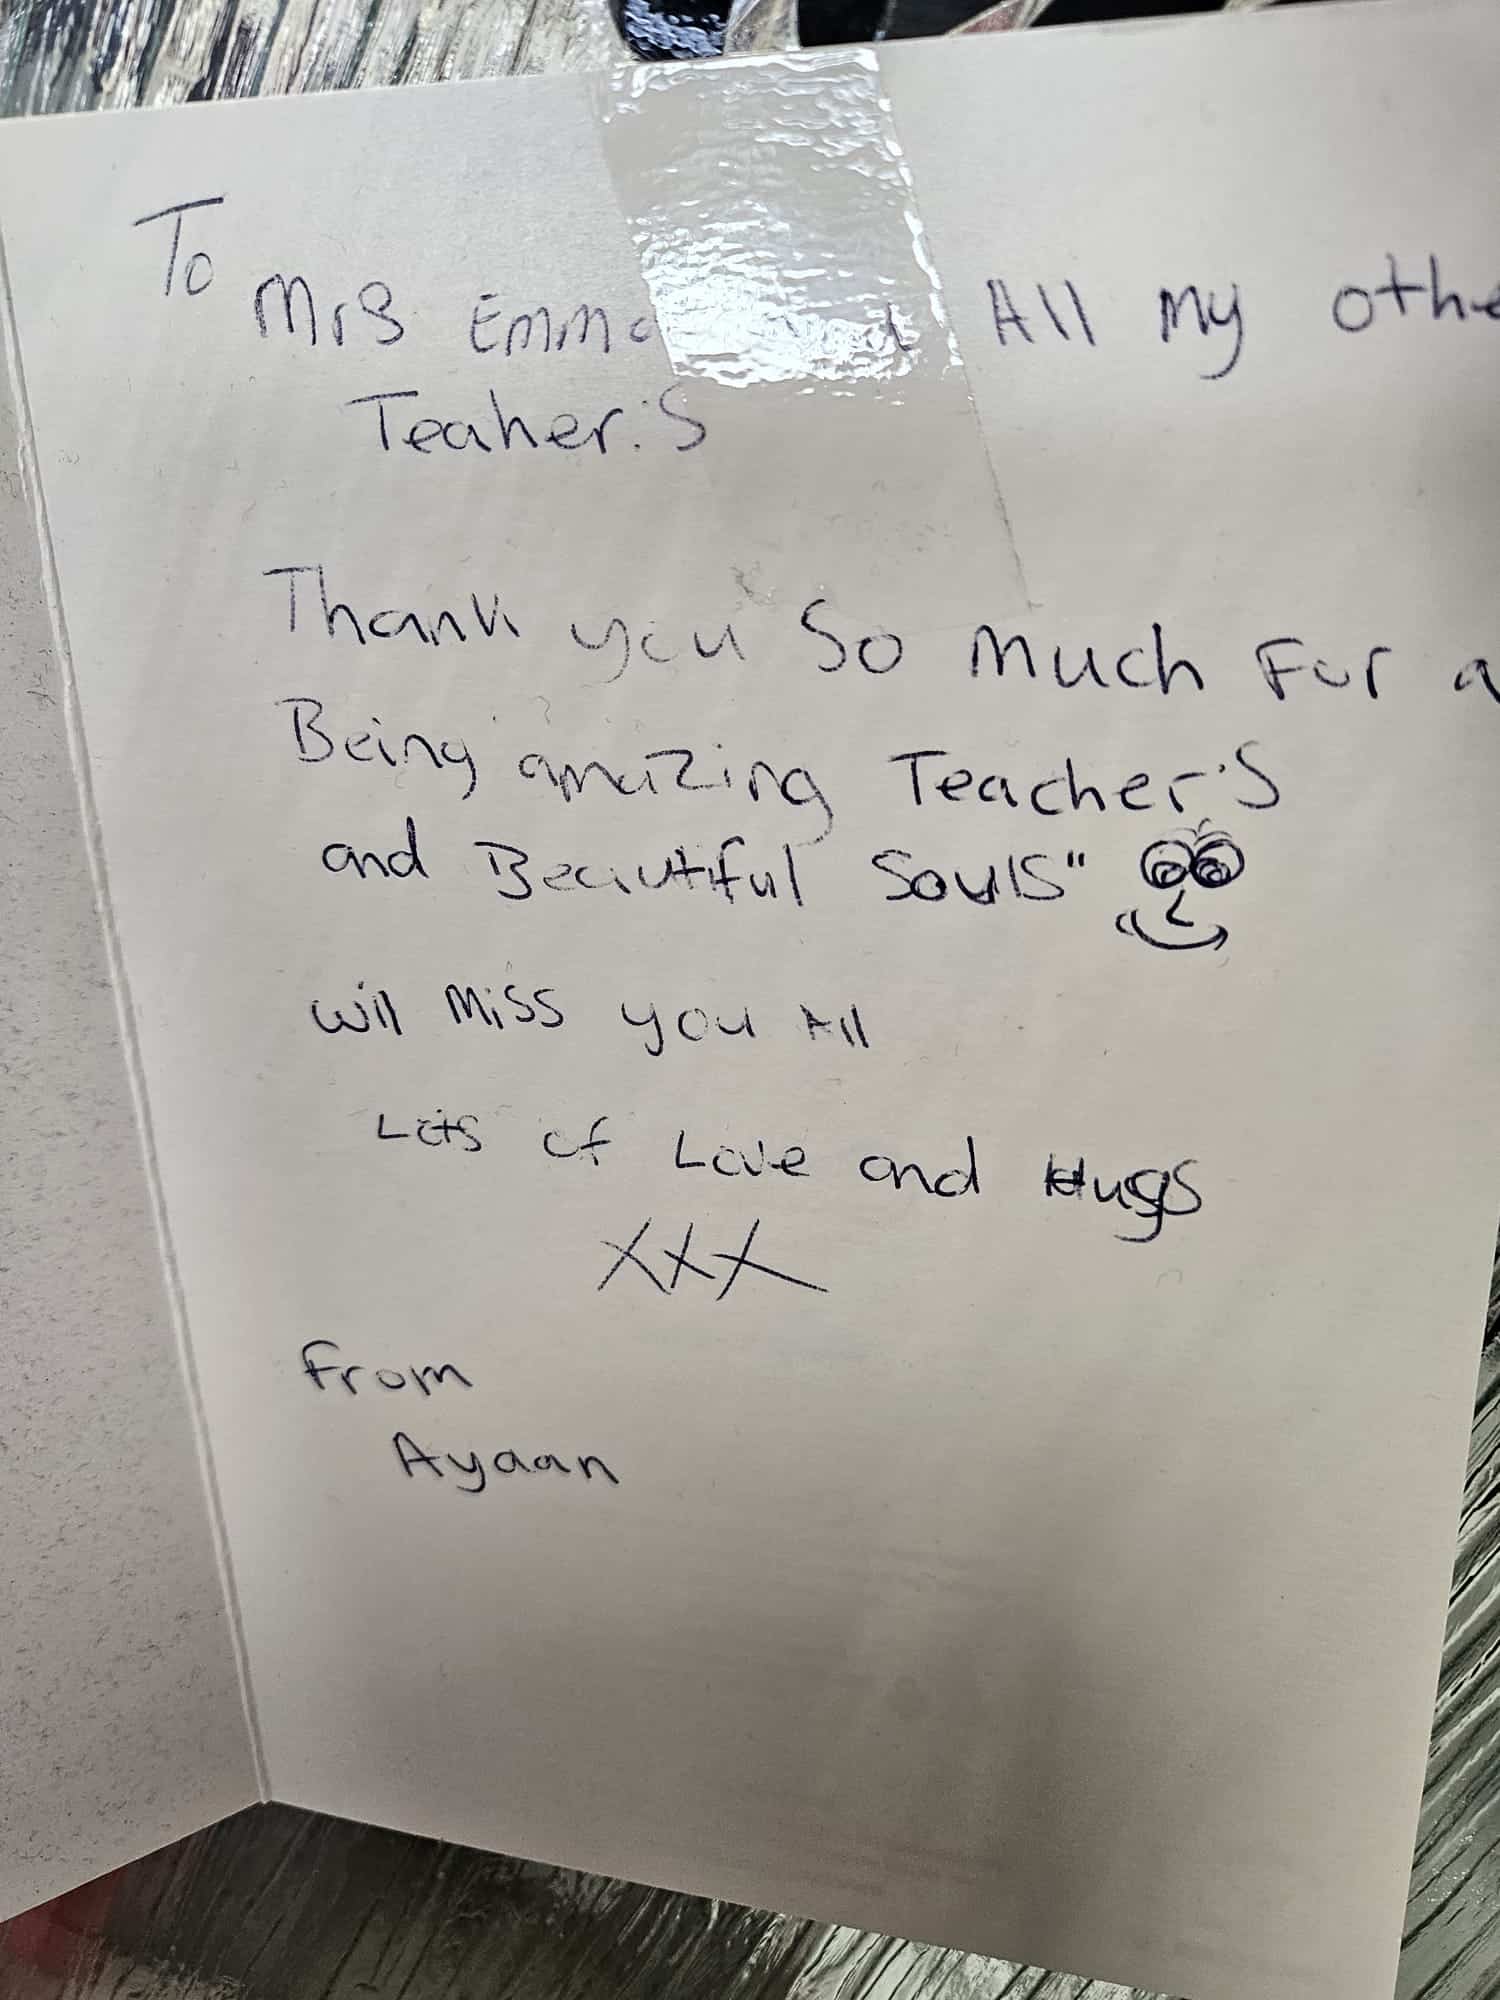 To
Mrs Emma and All my othe
Teaher's
Thank you so much For a
Being amazing Teacher's
and Beautiful Souls"
will miss you All
Lots of Love and Hugs
xxx
From
Ayaan